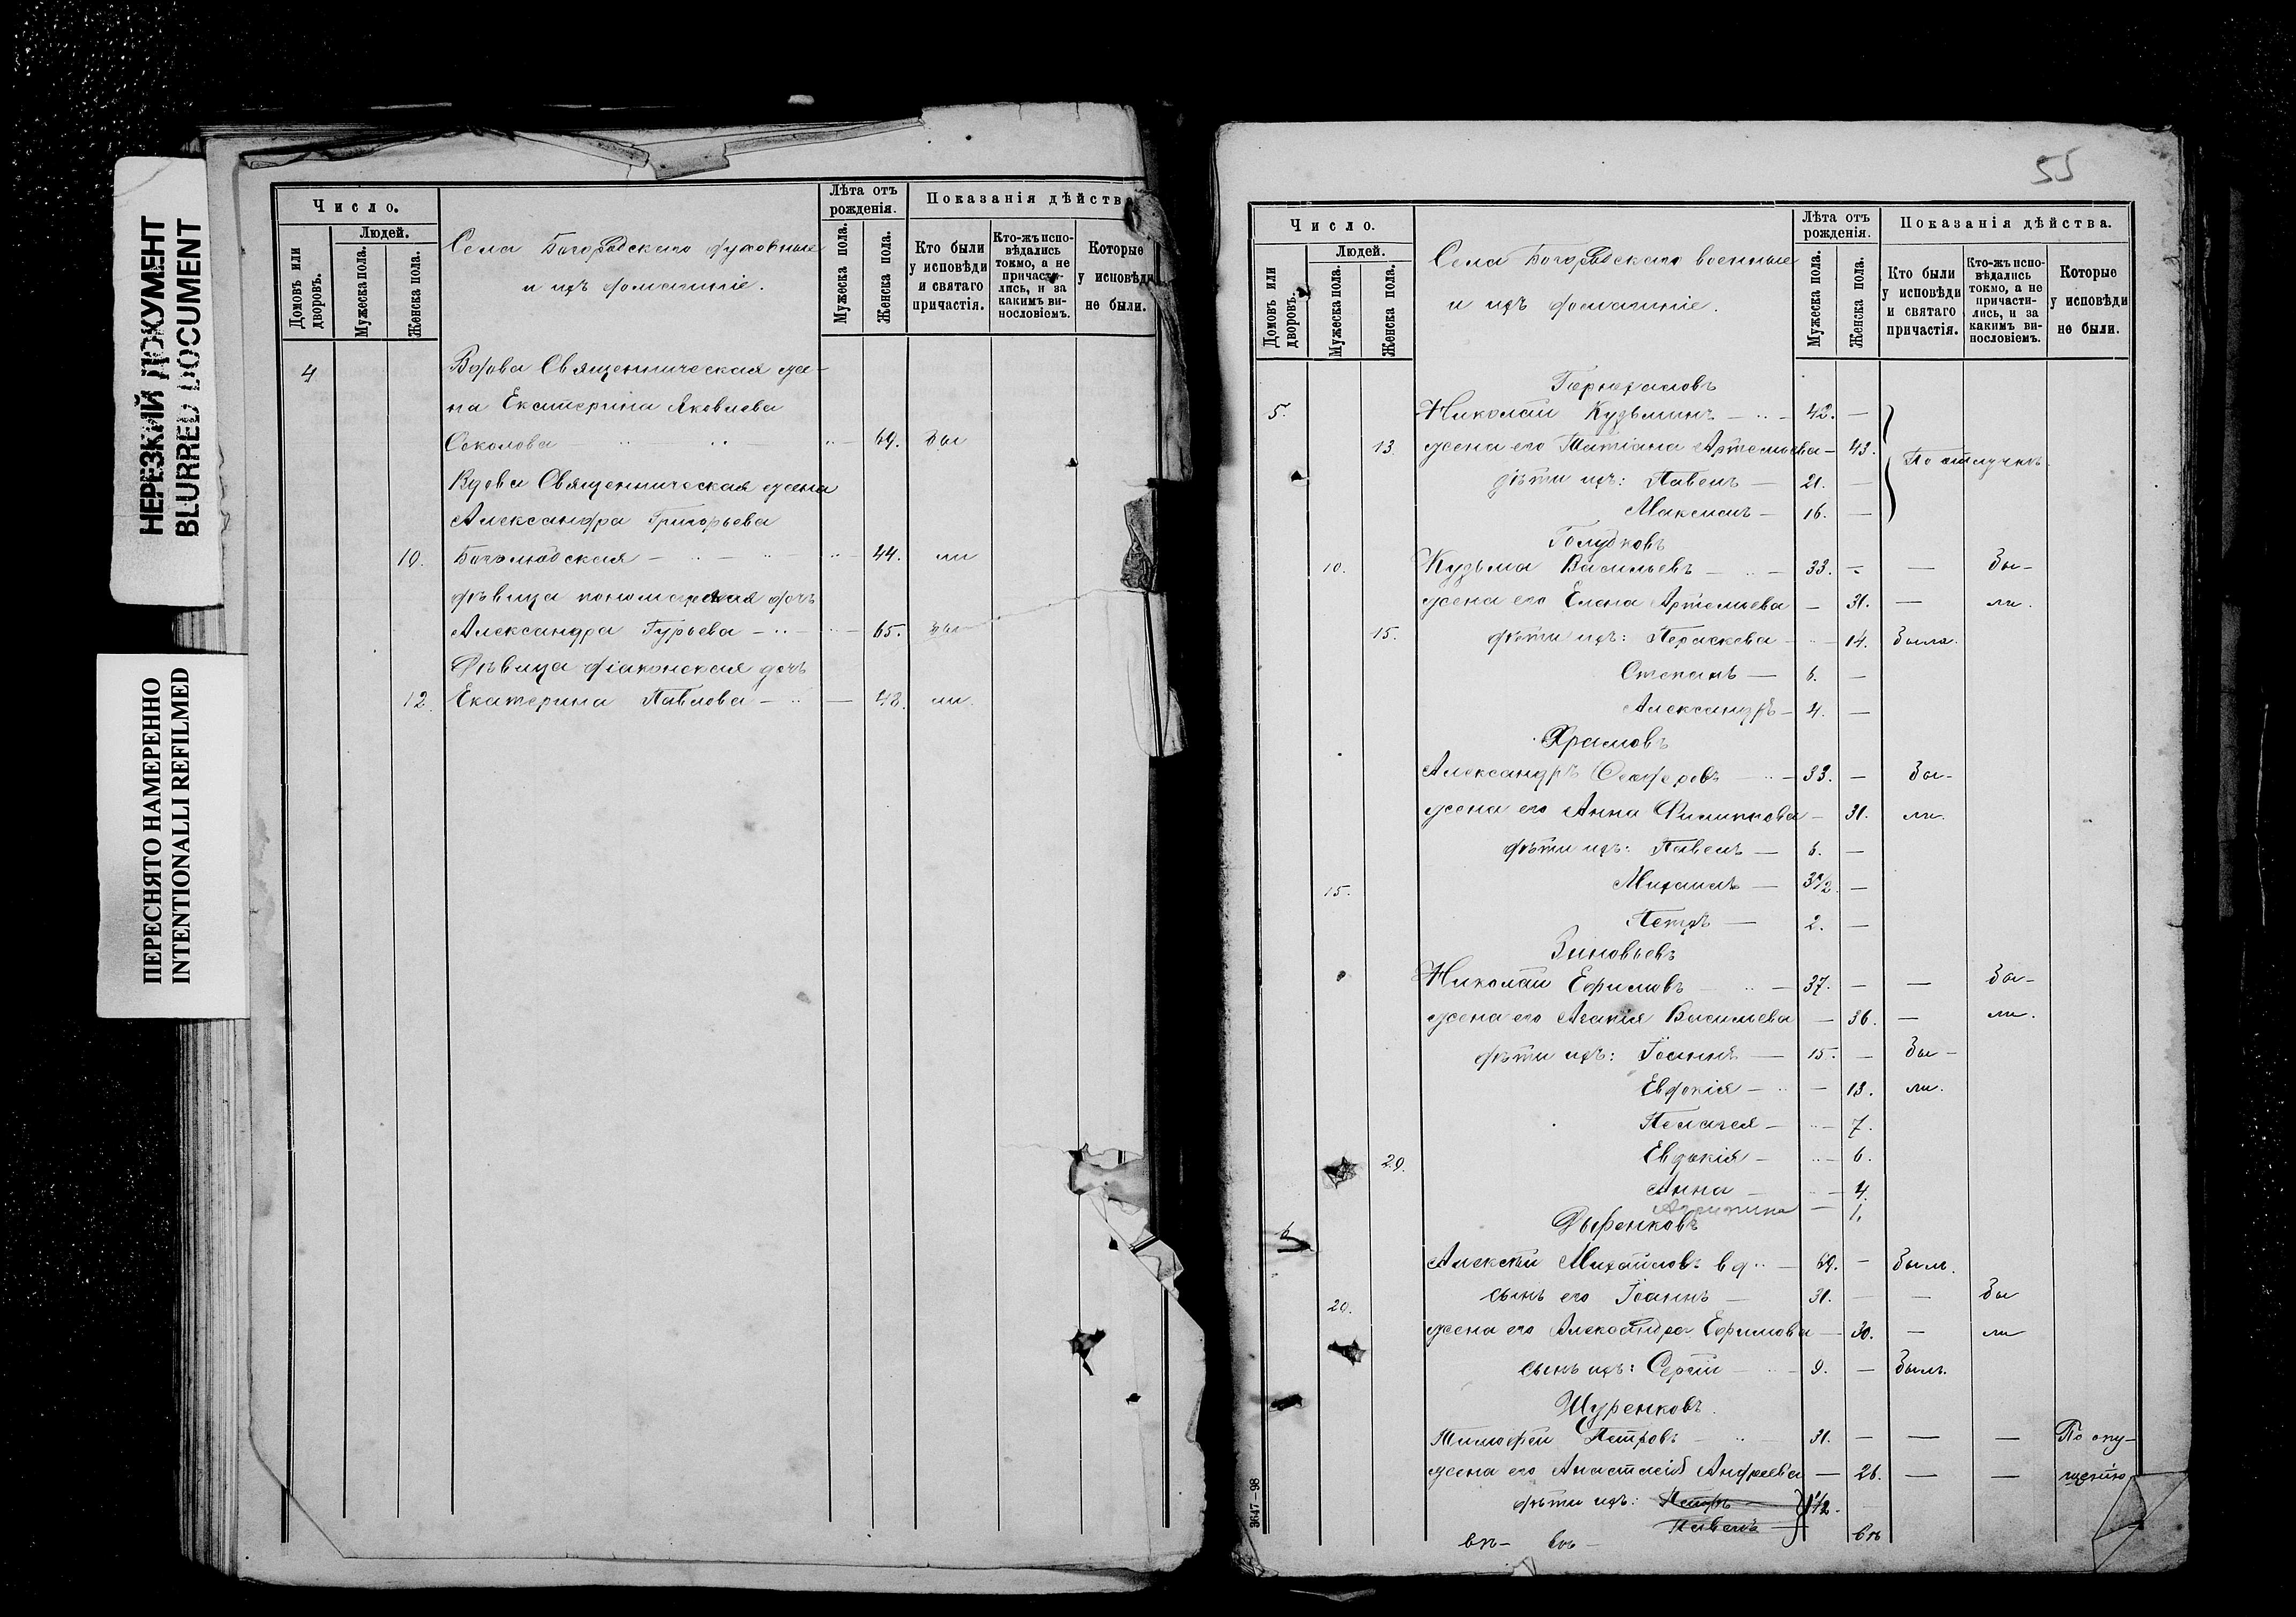 НЕРЕЗКИЙ ДОКУМЕНТ
BLURRED DOCUMENT
ПЕРЕСНЯТО НАМЕРЕННО
INTENTIONALLI REFILMED
Число.
Людей.
Домовъ или дворовъ.
Мужеска пола.
Женска пола.
Села Богородскаго духовные
и ихъ домашніе.
Лѣта отъ рожденія.
Мужеска пола.
Женска пола.
Показанія дѣйства
Кто были у исповѣди и святаго причастія.
Кто-жъ исповѣдались токмо, а не причастились, и за какимъ винословіемъ.
Которые у исповѣди не были.
4 Вдова Священническая же-
на Екатерина Яковлева
Соколова 69. бы
Вдова Священническая жена
Александра Григорьева
10. Боголюбская — 44. ли
дѣвица пономарская дочь
Александра Гурьева — 65. бы
Дѣвица діаконская дочь
12. Екатерина Павлова — 48. ли.
55
Число.
Людей.
Домовъ или дворовъ.
Мужеска пола.
Женска пола.
Села Богородскаго военные
и ихъ домашніе.
Лѣта отъ рожденія.
Мужеска пола.
Женска пола.
Показанія дѣйства.
Кто были у исповѣди и святаго причастія.
Кто-жъ исповѣдались токмо, а не причастились, и за какимъ винословіемъ.
Которые у исповѣди не были.
5. Николай Кузьминъ — 42. —
13. жена его Татіана Артемьева — 43. По отлучкѣ.
дѣти ихъ: Павелъ — 21. —
Максимъ — 16. —
Голубковъ
10. Кузьма Васильевъ — 33. — — бы-
жена его Елена Артемьева — 31. — ли.
15. дѣти ихъ: Параскева — 14. была.
Степанъ — 6. —
Александръ — 4. —
Храмовъ
Александръ — 33. — бы-
жена его Анна Филиппова — 31. ли.
дѣти ихъ: Павелъ — 6. —
15. Михаилъ — 3 1/2. —
Петръ — 2. —
Зиновьевъ
Николай Ефимовъ — 37. — — бы-
жена его Агапія Васильева — 36. — ли.
дѣти ихъ: Іоаннъ — 15. — бы-
Евдокія — 13. ли.
Пелагея — 7.
20. Евдокія — 6.
Анна — 4.
Агрипина — 1.
6 Дыренковъ
Алексѣй Михайловъ вд. — 69. — былъ.
20. сынъ его Іоаннъ — 31. — — бы
жена его Александра Ефимова — 30. — ли
сынъ ихъ: Сергій — 9. — былъ.
Шуренковъ.
Тимофей Петровъ — 31. — — — По опу-
жена его Анастасія Андреева — 26. — — щенію
дѣти ихъ: Петръ — 1/2. —
Павелъ —
3647—98